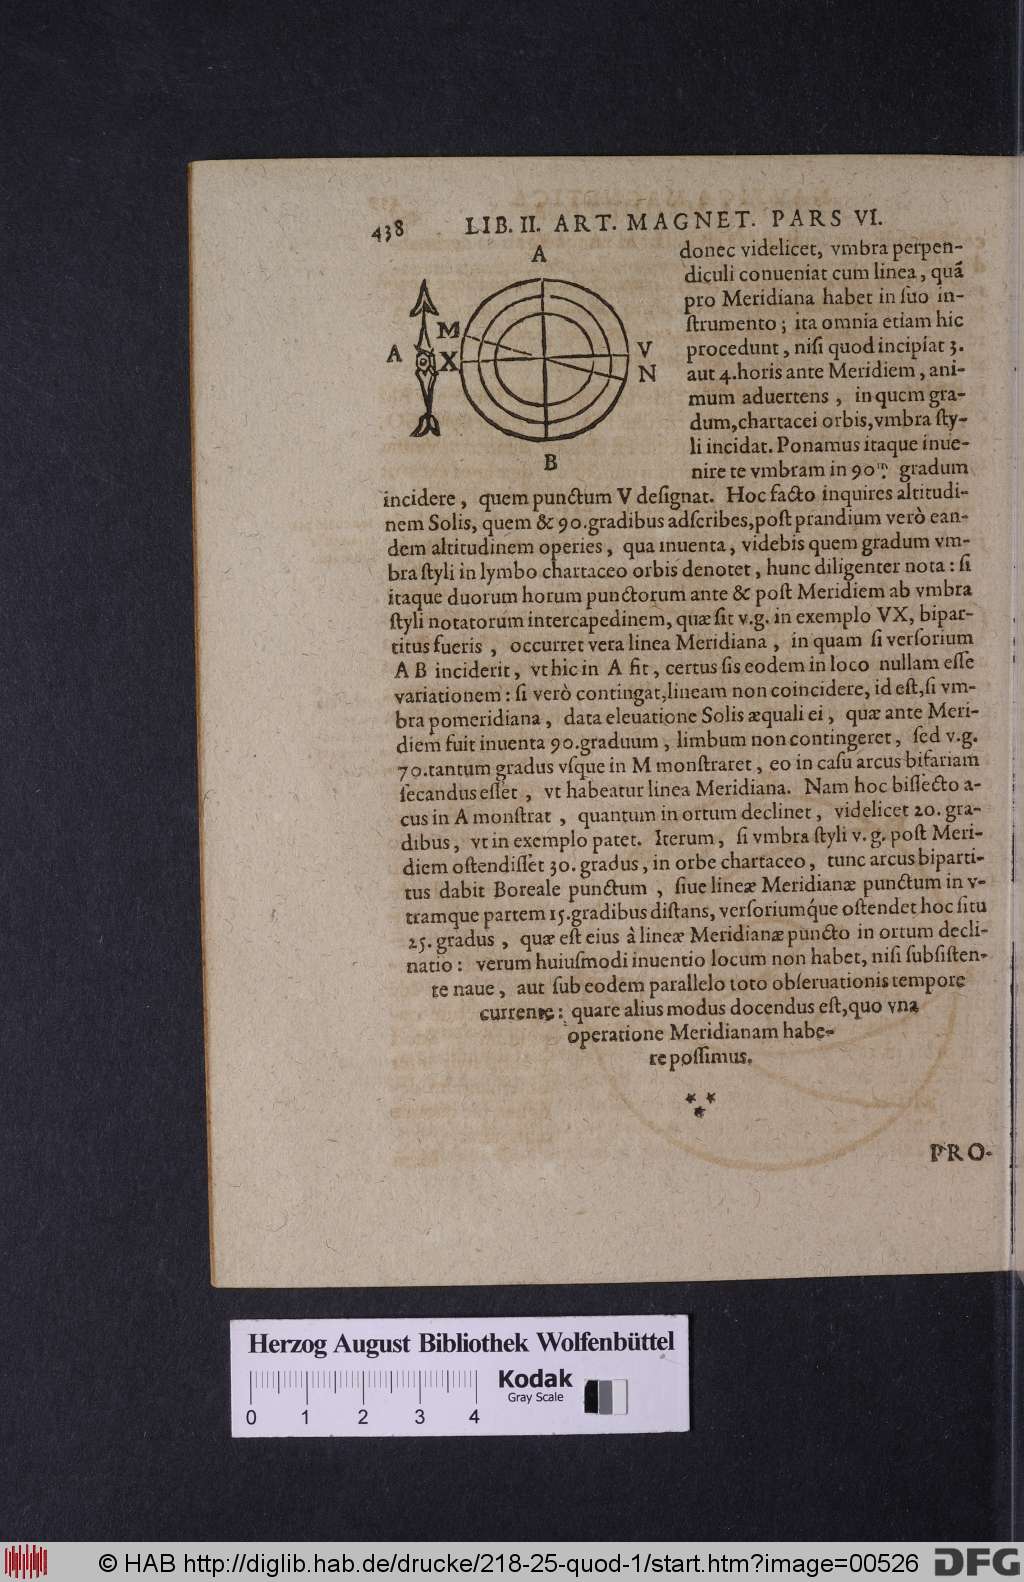 438 LIB. II. ART. MAGNET. PARS VI.
A
M
A
X
V
N
B
donec videlicet, vmbra perpen-
diculi conueniat cum linea, quã
pro Meridiana habet in ſuo in-
ſtrumento; ita omnia etiam hic
procedunt, niſi quod incipiat 3.
aut 4. horis ante Meridiem, ani-
mum aduertens, in quem gra-
dum, chartacei orbis, vmbra ſty-
li incidat. Ponamus itaque inue-
nire te vmbram in 90ᵐ. gradum
incidere, quem punctum V deſignat. Hoc facto inquires altitudi-
nem Solis, quem & 90. gradibus adſcribes, poſt prandium verò ean-
dem altitudinem operies, qua inuenta, videbis quem gradum vm-
bra ſtyli in lymbo chartaceo orbis denotet, hunc diligenter nota: ſi
itaque duorum horum punctorum ante & poſt Meridiem ab vmbra
ſtyli notatorum intercapedinem, quæ ſit v.g. in exemplo VX, bipar-
titus fueris, occurret vera linea Meridiana, in quam ſi verſorium
A B inciderit, vt hic in A fit, certus ſis eodem in loco nullam eſſe
variationem: ſi verò contingat, lineam non coincidere, id eſt, ſi vm-
bra pomeridiana, data eleuatione Solis æquali ei, quæ ante Meri-
diem fuit inuenta 90. graduum, limbum non contingeret, ſed v.g.
70. tantum gradus vſque in M monſtraret, eo in caſu arcus bifariam
ſecandus eſſet, vt habeatur linea Meridiana. Nam hoc biſſecto a-
cus in A monſtrat, quantum in ortum declinet, videlicet 20. gra-
dibus, vt in exemplo patet. Iterum, ſi vmbra ſtyli v. g. poſt Meri-
diem oſtendiſſet 30. gradus, in orbe chartaceo, tunc arcus biparti-
tus dabit Boreale punctum, ſiue lineæ Meridianæ punctum in v-
tramque partem 15. gradibus diſtans, verſoriumq́ue oſtendet hoc ſitu
25. gradus, quæ eſt eius à lineæ Meridianæ puncto in ortum decli-
natio: verum huiuſmodi inuentio locum non habet, niſi ſubſiſten-
te naue, aut ſub eodem parallelo toto obſeruationis tempore
currente: quare alius modus docendus eſt, quo vna
operatione Meridianam habe-
re poſſimus.
PRO-
Herzog August Bibliothek Wolfenbüttel
0 1 2 3 4
Kodak
Gray Scale
© HAB http://diglib.hab.de/drucke/218-25-quod-1/start.htm?image=00526
DFG